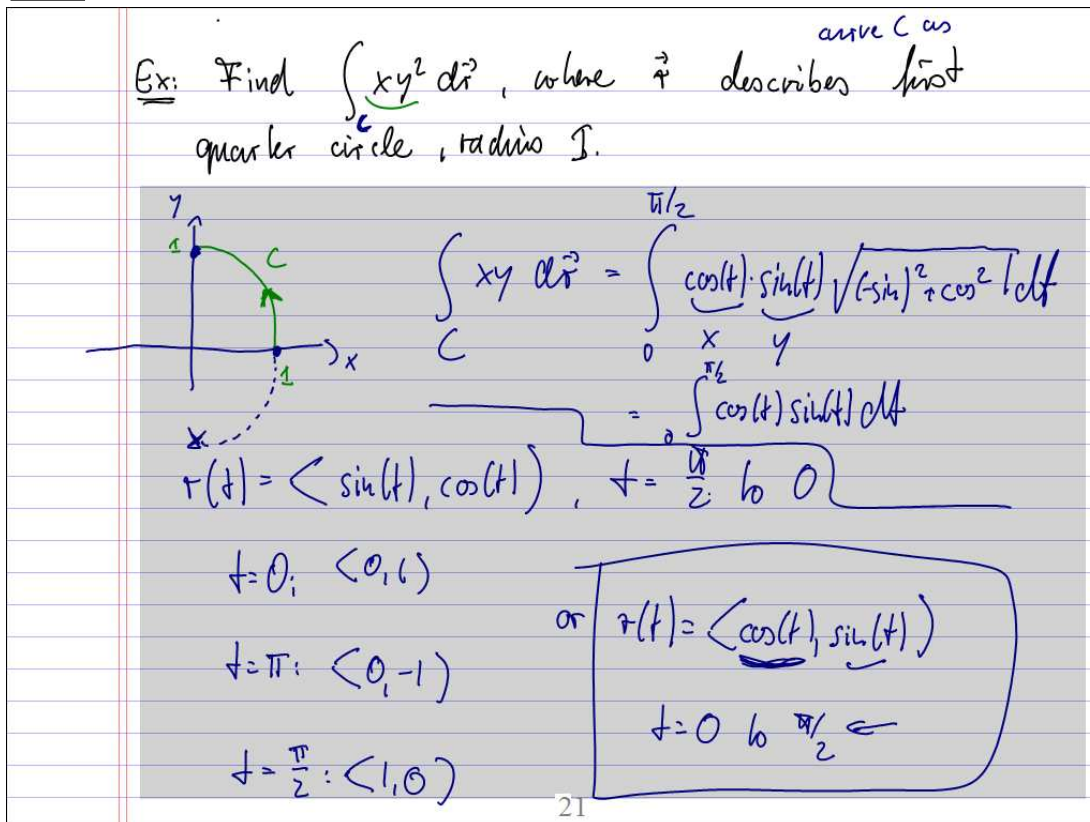 curve C as
Ex: Find ∫_C xy² dr⃗, where r⃗ describes first
quarter circle, radius 1.
y
1
C
x
1
∫_C xy dr⃗ = ∫_0^{π/2} cos(t)·sin(t) √((-sin)²+cos²) dt
x y
= ∫_0^{π/2} cos(t) sin(t) dt
r(t) = < sin(t), cos(t) >, t = π/2 to 0
t=0: <0,1>
t=π: <0,-1>
t=π/2: <1,0>
or r(t) = <cos(t), sin(t)>
t=0 to π/2 ←
21